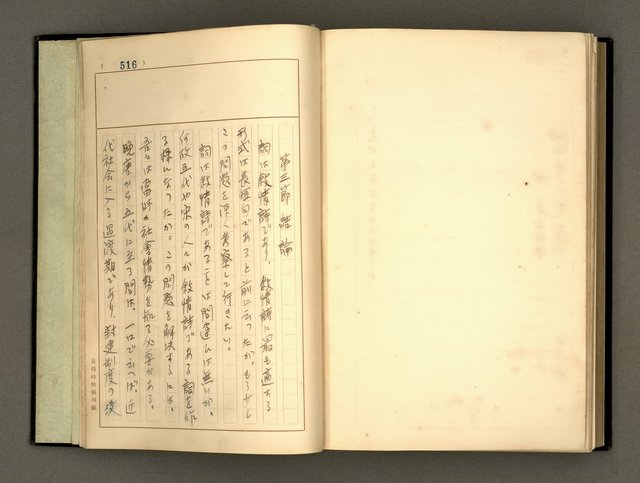 ( 516 )
第三節 結論
詞は敍情詩であり、敍情詩に最も適する
形式は長短句であると前に云つたが、もう少し
この問題を深く考察して行きたい。
詞は敍情詩であることは間違ひは無いが、
何故五代や宋の人々が敍情詩である詞を作
る様になつたか。この問題を解決するには、
吾々は當時の社會情勢を知る必要がある。
晩唐から五代に至る間は、一口で云へば、近
代社会に入る過渡期であり、封建制度の後